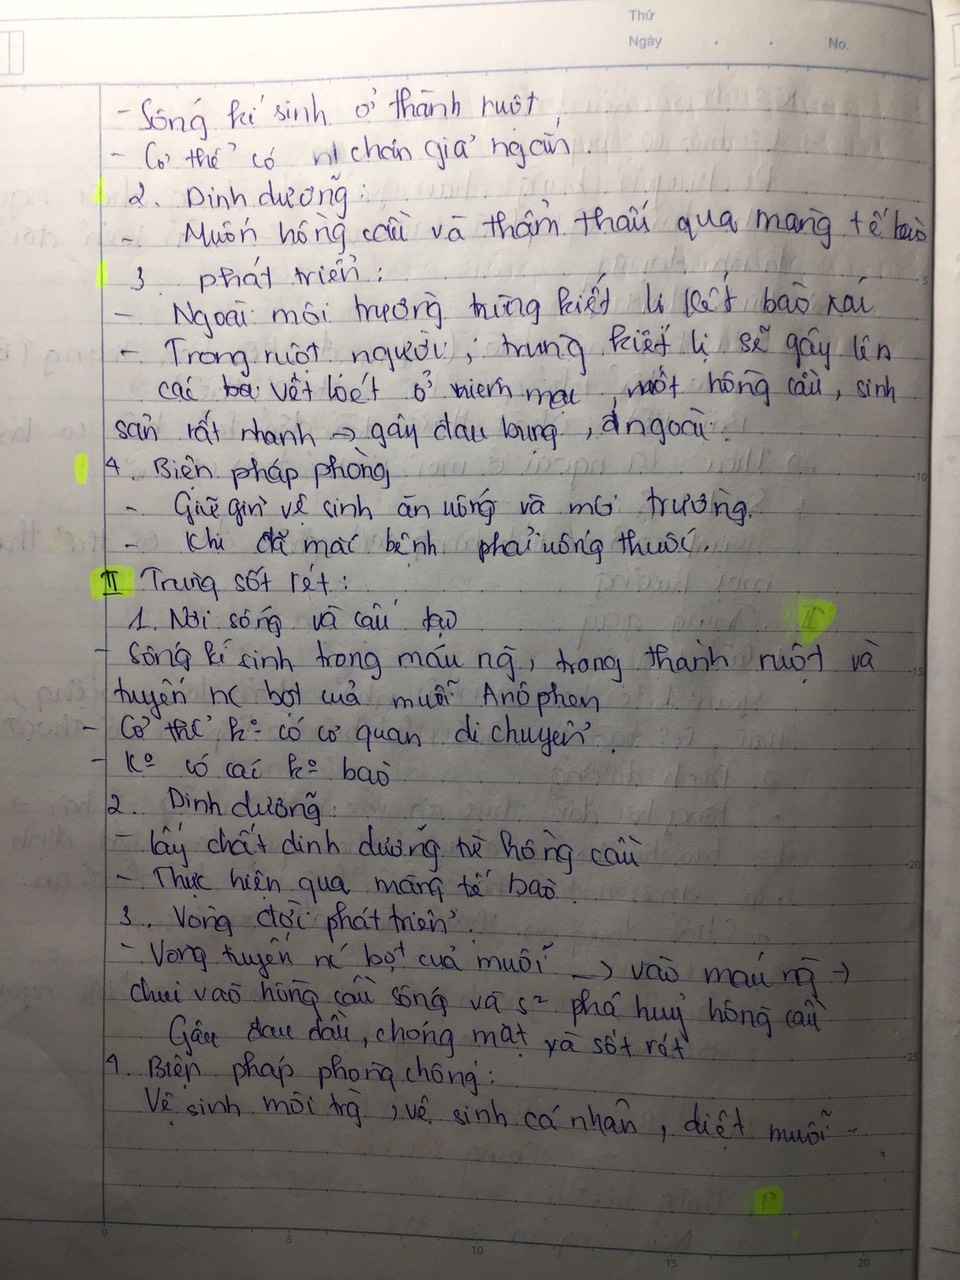 Thứ
Ngày . . No.
- Sống kí sinh ở thành ruột
- Cơ thể có chân giả ngắn.
2. Dinh dưỡng:
- Muốn hồng cầu và thẩm thấu qua màng tế bào
3. phát triển:
- Ngoài môi trường trùng kiết lị kết bào xác
- Trong ruột người, trùng kiết lị sẽ gây lên
các vết loét ở niêm mạc, nuốt hồng cầu, sinh
sản rất nhanh → gây đau bụng, đi ngoài.
4. Biện pháp phòng
- Giữ gìn vệ sinh ăn uống và môi trường.
- Khi đã mắc bệnh phải uống thuốc.
II Trùng sốt rét:
1. Nơi sống và cấu tạo
I
- Sống kí sinh trong máu ng̀, trong thành ruột và
tuyến nc bọt của muỗi Anôphen
- Cơ thể kº có cơ quan di chuyển.
- Kº có các kº bào
2. Dinh dưỡng:
- lấy chất dinh dưỡng từ hồng cầu
- Thực hiện qua màng tế bào.
3. Vòng đời phát triển.
- Vong tuyến nc bọt của muỗi → vào máu ng̀ →
chui vào hồng cầu sống và s² phá huỷ hồng cầu
Gây đau đầu, chóng mặt và sốt rét
4. Biện pháp phòng chống:
Vệ sinh môi trg̀, vệ sinh cá nhân, diệt muỗi -
0 5 10 15 20